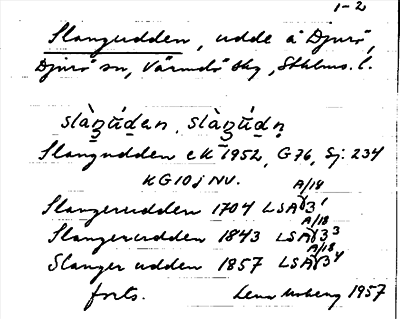 1-2
Slangudden, udde å Djurö,
Djurö sn, Värmdö skg, Sthlms. l.
slàŋu̇́dan, slàŋu̇́dṇ
Slangudden ek 1952, G76, Sj. 234
KG10j NV.
Slangerudden 1704 LSA A/18
Slangerudden 1843 LSA A/18
Slanger udden 1857 LSA A/18
forts. Lena 1957